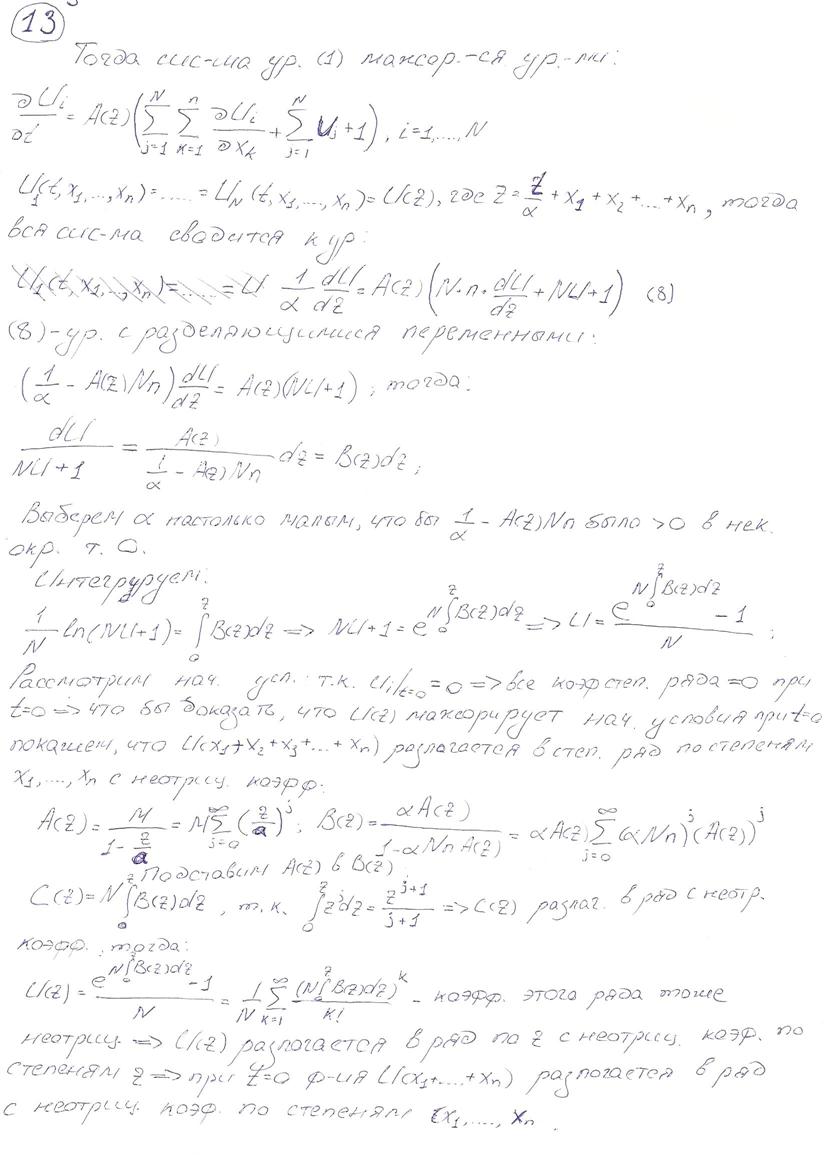 13
Тогда сис-ма ур. (1) мажор.-ся ур.-ми:
∂Ui/∂t = A(z)(∑_{j=1}^{N} ∑_{k=1}^{n} ∂Ui/∂xk + ∑_{j=1}^{N} Uj + 1), i=1,...,N
U1(t, x1,..., xn) = ..... = UN(t, x1,..., xn) = U(z), где z = t/α + x1 + x2 + ... + xn, тогда
вся сис-ма сводится к ур:
U1(t, x1,..., xn) = ..... = U 1/α dU/dz = A(z)(N·n·dU/dz + NU+1) (8)
(8)-ур. с разделяющимися переменными:
(1/α - A(z)Nn) dU/dz = A(z)(NU+1), тогда:
dU/(NU+1) = A(z)/(1/α - A(z)Nn) dz = B(z)dz;
Выберем α настолько малым, что бы 1/α - A(z)Nn было >0 в нек.
окр. т. O.
Интегрируем:
1/N ln(NU+1) = ∫_0^z B(z)dz => NU+1 = e^{N∫_0^z B(z)dz} => U = (e^{N∫_0^z B(z)dz} - 1)/N;
Рассмотрим нач. усл. т.к. Ui|t=0 = 0 => все коэф степ. ряда =0 при
t=0 => что бы доказать, что U(z) мажорирует нач. условия при t=0
покажем, что U(x1+x2+x3+...+xn) разлагается в степ. ряд по степеням
x1,..., xn с неотриц. коэфф:
A(z) = M/(1 - z/a) = M∑_{j=0}^{∞} (z/a)^j; B(z) = αA(z)/(1-αNnA(z)) = αA(z)∑_{j=0}^{∞} (αNn)^j (A(z))^j
Подставим A(z) в B(z)
C(z) = N∫_0^z B(z)dz, т.к. ∫_0^z z^j dz = z^{j+1}/(j+1) => C(z) разлаг. в ряд с неотр.
коэфф., тогда:
U(z) = (e^{N∫_0^z B(z)dz} - 1)/N = 1/N ∑_{k=1}^{∞} (N∫_0^z B(z)dz)^k/k! - коэфф. этого ряда тоже
неотриц. => U(z) разлогается в ряд по z с неотриц. коэф. по
степеням z => при t=0 ф-ия U(x1+...+xn) разлогается в ряд
с неотриц. коэф. по степеням x1,..., xn.